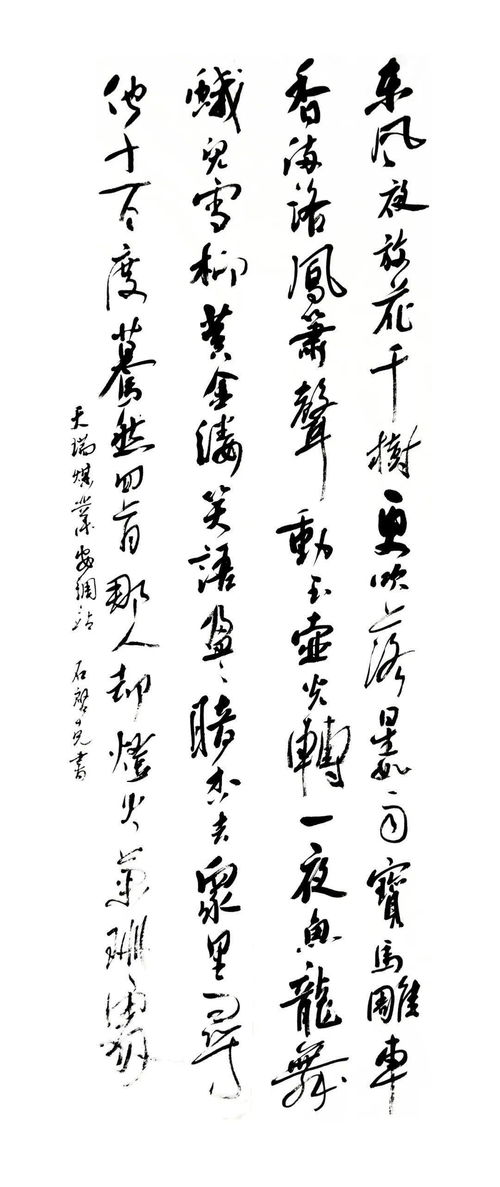 東風夜放花千樹更吹落星如雨寶馬雕車
香滿路鳳簫聲動玉壺光轉一夜魚龍舞
蛾兒雪柳黃金縷笑語盈〻暗香去眾里尋
他十百度驀然回首那人却燈火闌珊處
天瑞煤業 石 書